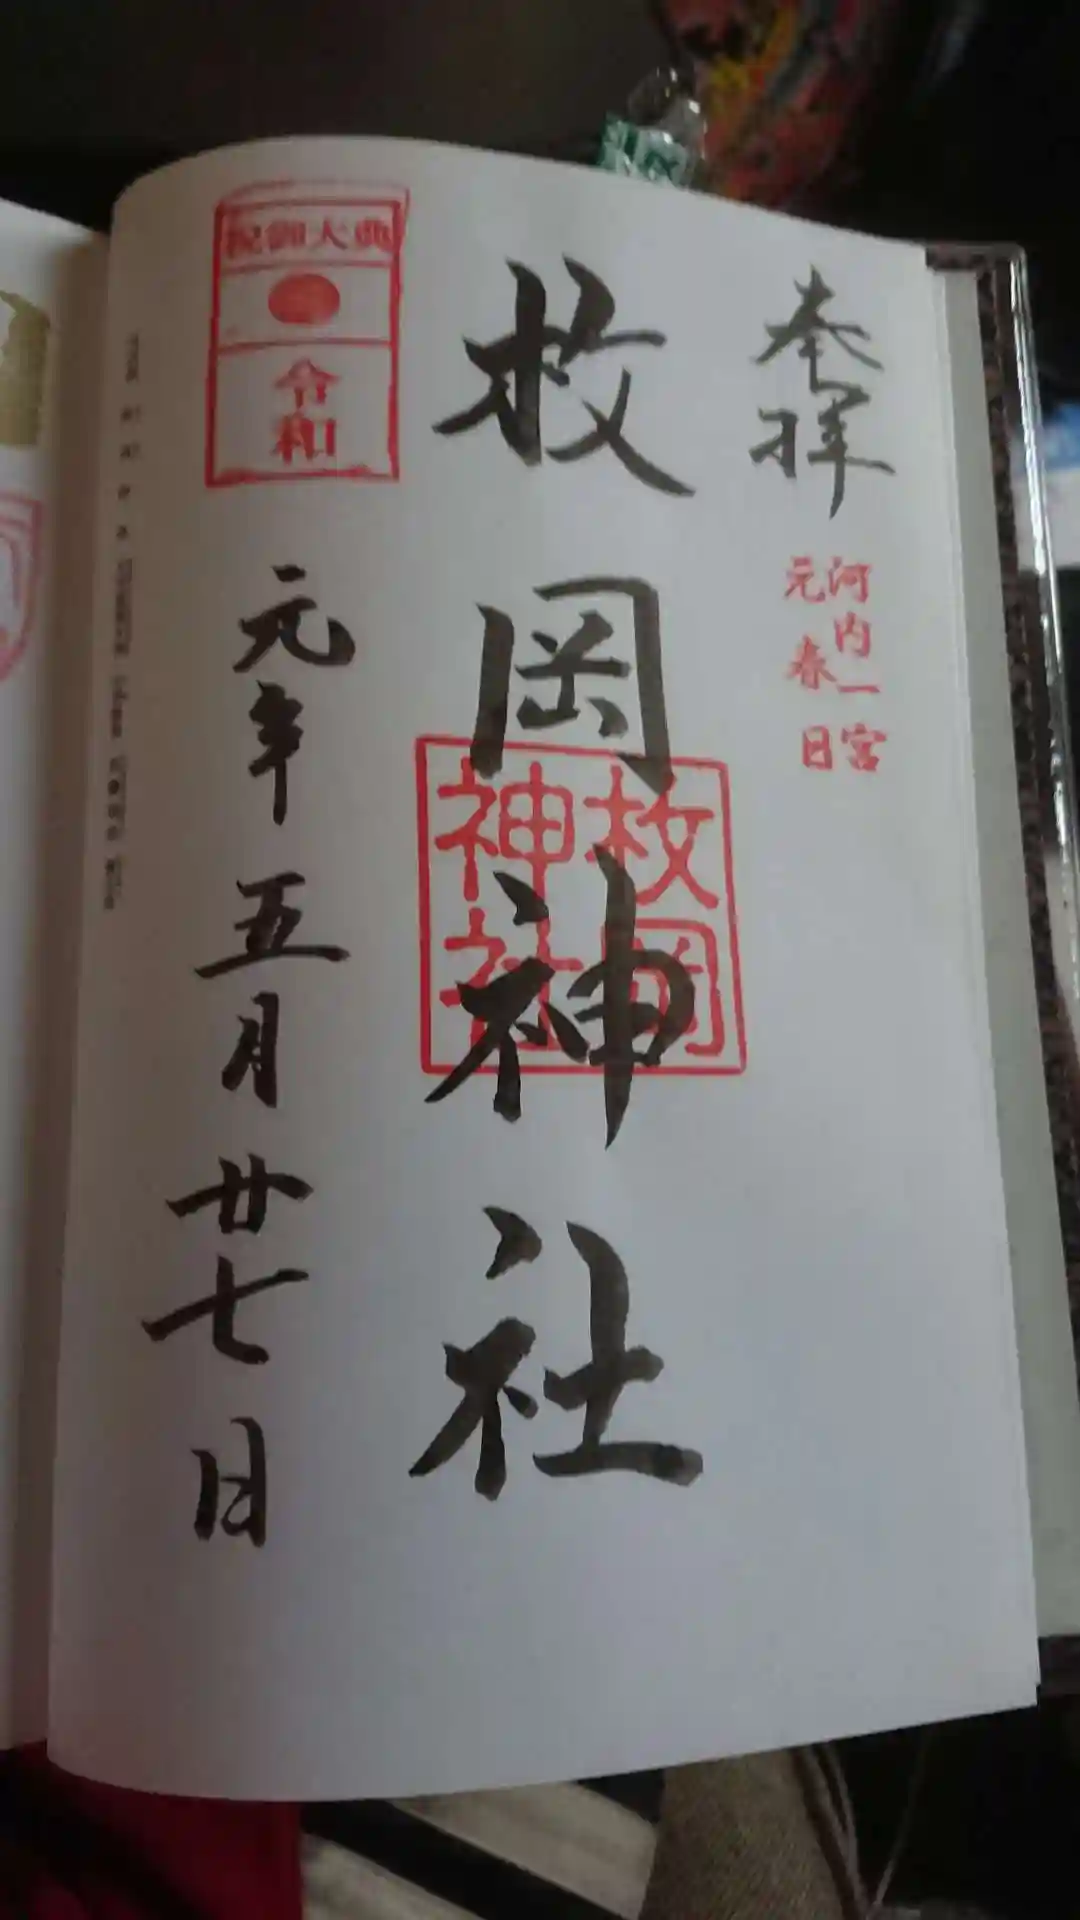 奉拝
河内一宮
元春日
枚岡神社
枚岡
神社
祝御大典
令和
元年五月廿七日